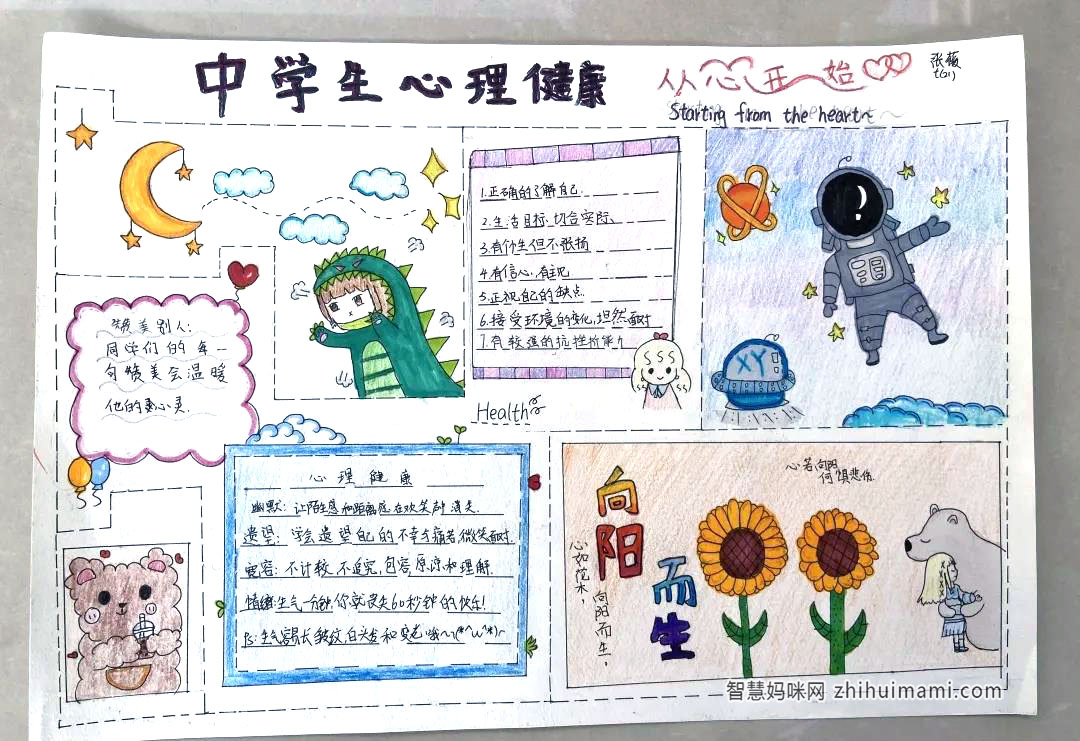 中学生心理健康
从心开始
Starting from the heart~
张薇
1.正确的了解自己.
2.生活目标,切合实际.
3.有个性但不张扬
4.有信心,有主见
5.正视自己的缺点.
6.接受环境的变化,坦然面对
7.有较强的抗挫折能力
XY
Health
赞美别人:
同学们的每一
句赞美会温暖
他的心灵.
心理健康
幽默: 让陌生感和距离感在欢笑中消失.
遗望: 学会遗望自己的不幸与痛苦微笑面对.
宽容: 不计较.不追究,包容,原谅和理解.
情绪:生气一分钟,你就丧失60秒钟的快乐!
Ps:生气容易长皱纹,白头发和变老哦~
心若向阳
何惧悲伤.
向阳而生
心如花木,
向阳而生.
智慧妈咪网 zhihuimami.com